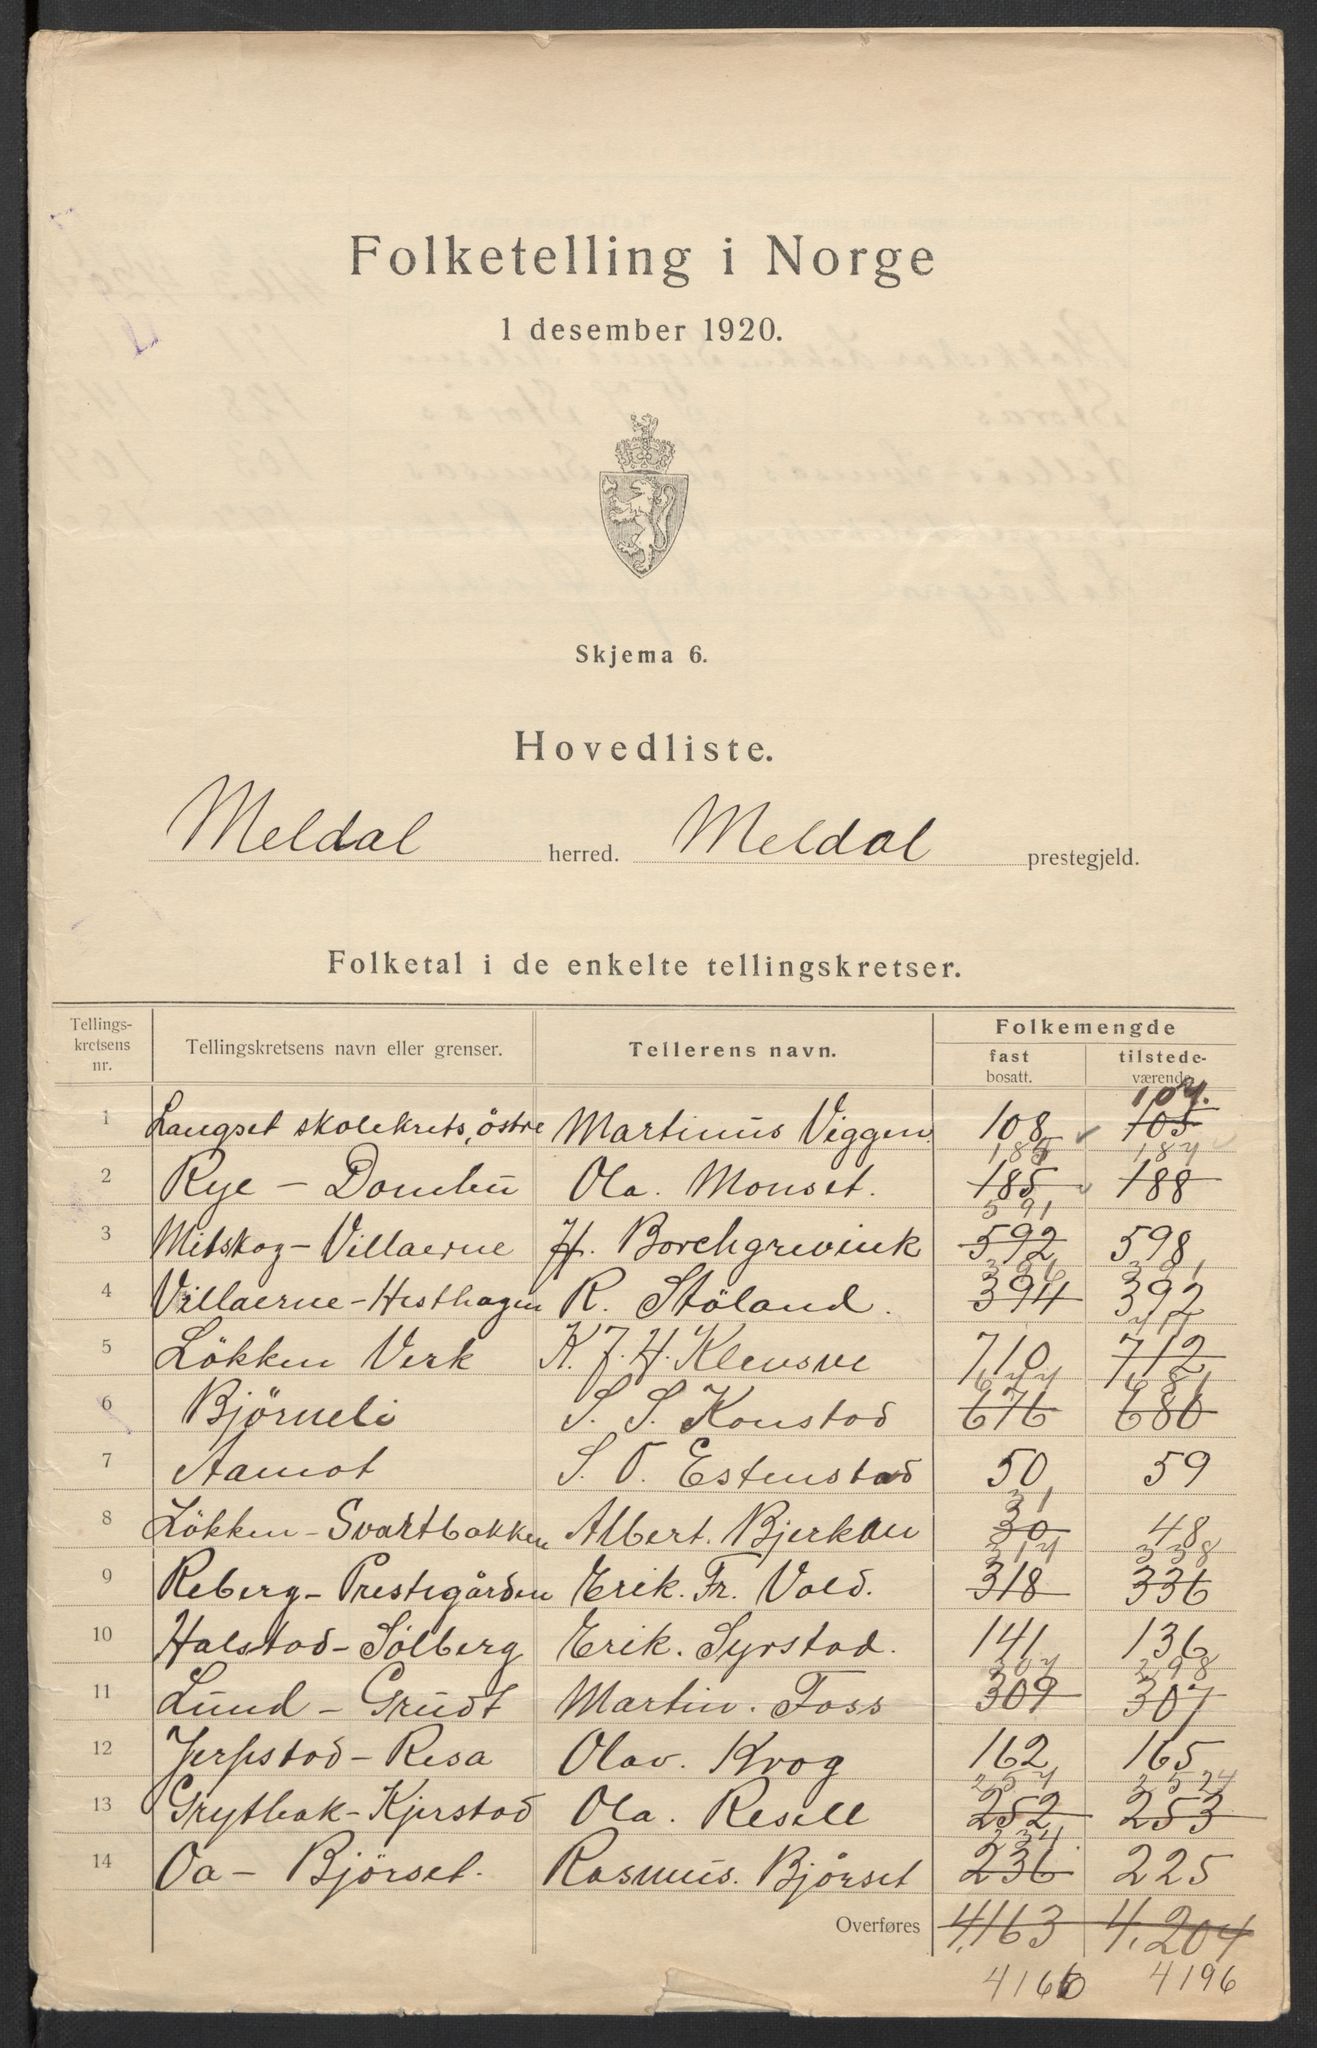 Folketelling i Norge
1 desember 1920.
Skjema 6.
Hovedliste.
Meldal herred. Meldal prestegjeld.
Folketal i de enkelte tellingskretser.
Tellings-kretsens nr. Tellingskretsens navn eller grenser. Tellerens navn. Folkemengde
fast bosatt. tilstede-værende.
107.
1 Langset skolekrets, östre Martinus Viggen. 108 105
185 187
2 Rye - Dombu Ola. Monset. 185 188
591
3 Mitskog - Villaerne H. Borchgrevink 592 598
396 391
4 Villaerne - Hesthagen R. Stöland. 394 392
711
5 Lökken Verk K. J. H. Klevsve 710 712
677 681
6 Björneli S. S. Konstad 676 680
7 Aamot S. O. Estenstad 50 59
31
8 Lökken - Svartbakken Albert. Bjerkan 30 48
317 338
9 Reberg - Prestegården Erik. Fr. Vold. 318 336
10 Halstad - Sölberg Erik. Syrstad. 141 136
307 298
11 Lund - Grudt Martin. Foss 309 307
12 Jerpstad - Resa Olav. Krog 162 165
257 252
13 Grytbak - Kjerstad Ola. Resell 252 253
234.
14 Oa - Björset. Rasmus. Björset 236 225
Overføres 4,163 4,204
4166 4196